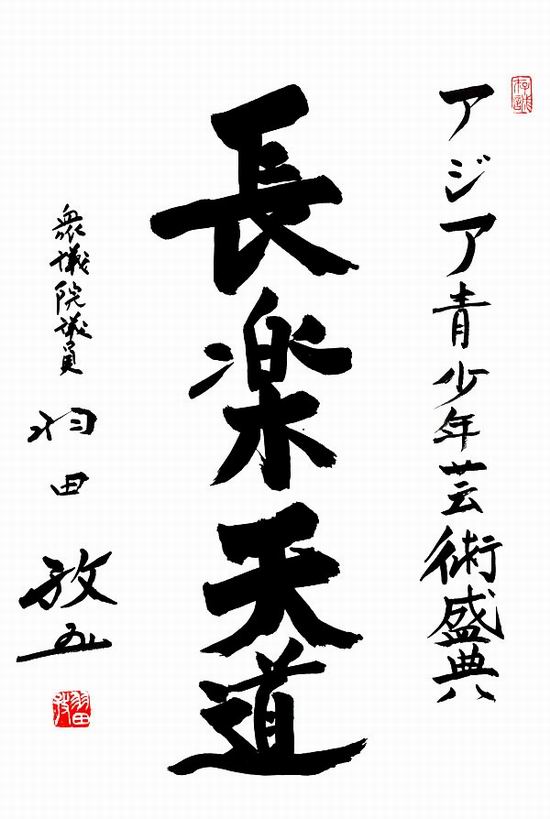 アジア青少年芸術盛典
長楽天道
衆議院議員
羽田
孜